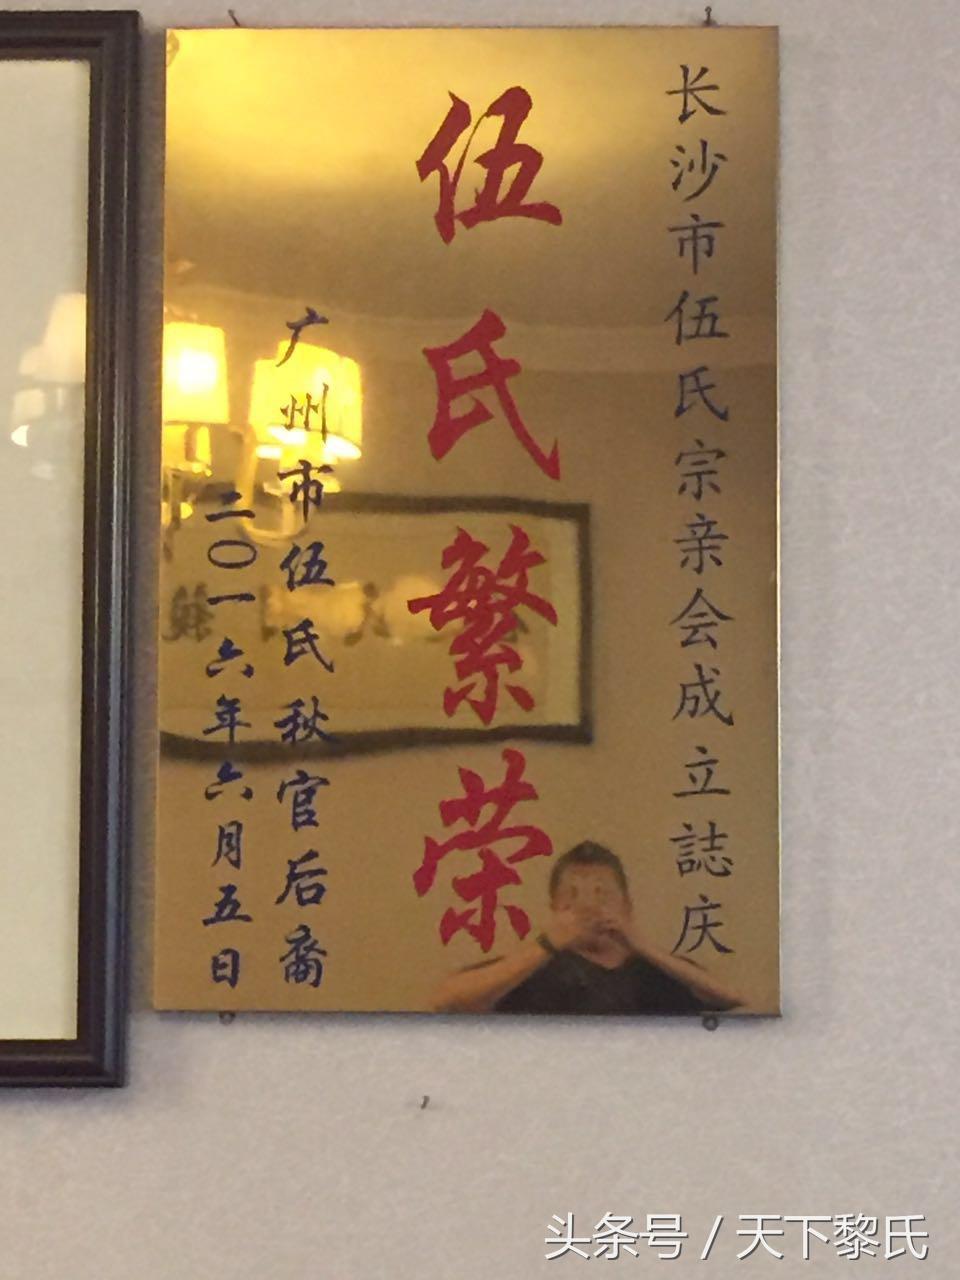 长沙市伍氏宗亲会成立誌庆
伍氏繁荣
广州市伍氏秋官后裔
二〇一六年六月五日
头条号/天下黎氏